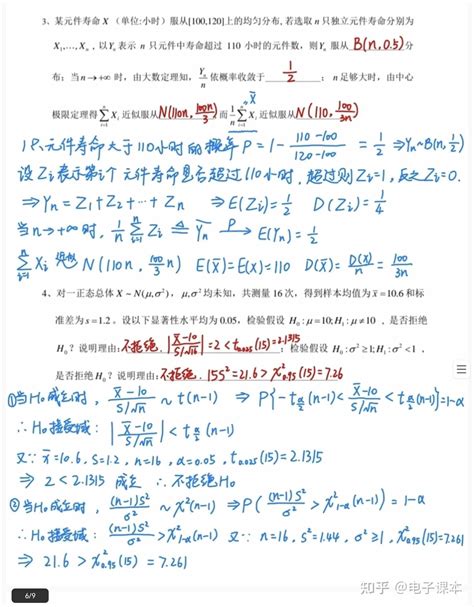 3、某元件寿命 X （单位:小时）服从[100,120]上的均匀分布, 若选取 n 只独立元件寿命分别为
X₁,…,Xₙ , 以 Yₙ 表示 n 只元件中寿命超过 110 小时的元件数，则 Yₙ 服从 B(n,0.5) 分
布；当 n→+∞ 时，由大数定理知，Yₙ/n 依概率收敛于 1/2 ； n 足够大时，由中心
极限定理得 ∑ᵢ₌₁ⁿ Xᵢ 近似服从 N(110n, 100n/3) 而 1/n ∑ᵢ₌₁ⁿ Xᵢ 近似服从 N(110, 100/3n)
X̄
1只元件寿命大于110小时的概率 P = 1 - (110-100)/(120-100) = 1/2 ⇒ Yₙ~B(n,1/2)
设 Zᵢ 表示第 i 个元件寿命是否超过110小时, 超过则 Zᵢ=1, 反之 Zᵢ=0.
⇒ Yₙ = Z₁+Z₂+…+Zₙ ⇒ E(Zᵢ)=1/2 D(Zᵢ)=1/4
当n→+∞时, 1/n ∑ᵢ₌₁ⁿ Zᵢ ≜ Ȳₙ →P E(Yₙ)=1/2
∑ᵢ₌₁ⁿ Xᵢ N(110n, 100/3 n) E(X̄)=E(X)=110 D(X̄)=D(X)/n=100/3n
4、对一正态总体 X ~ N(μ,σ²) ， μ,σ² 均未知，共测量 16 次，得到样本均值为 x̄=10.6 和标
准差为 s=1.2 。设以下显著性水平均为 0.05，检验假设 H₀:μ=10;H₁:μ≠10 ，是否拒绝
H₀？说明理由: 不拒绝. |(x̄-10)/(s/√n)|=2<t₀.₀₂₅(15)=2.1315 ；检验假设 H₀:σ²≥1;H₁:σ²<1 ，
是否拒绝 H₀？说明理由: 不拒绝. 15S²=21.6>χ²₀.₉₅(15)=7.26
①当H₀成立时, (X̄-10)/(S/√n) ~ t(n-1) ⇒ P{-t_α/2(n-1)<(X̄-10)/(S/√n)<t_α/2(n-1)}=1-α
∴ H₀接受域: |(X̄-10)/(S/√n)| < t_α/2(n-1)
又∵ x̄=10.6, s=1.2, n=16, α=0.05, t₀.₀₂₅(15)=2.1315
⇒ 2<2.1315 成立 ∴ 不拒绝H₀
②当H₀成立时, (n-1)S²/σ² ~ χ²(n-1) ⇒ P((n-1)S²/σ² > χ²₁₋α(n-1))=1-α
∴ H₀接受域: (n-1)S²/σ² > χ²₁₋α(n-1) 又∵ n=16, s²=1.44, σ²≥1, χ²₀.₉₅(15)=7.261
⇒ 21.6 > χ²₀.₉₅(15) = 7.261
6/9
知乎 @电子课本